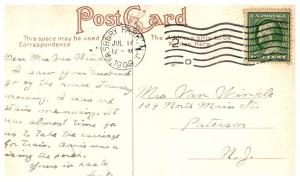 Post Card
This space may be used for
Correspondence
The Address only to
be Written Here
ASBURY PARK, N.J.
JUL 17
12 - M
1909
Dear Mrs Van Winkle
I saw your husband
go by the house Thursday
morning. I was up
stairs
It
was almost time for
us to take the carriage
for train. Anna was a
the porch.
Yours in haste
Mrs. Van Winkle
North Main St.
Paterson
N.J.